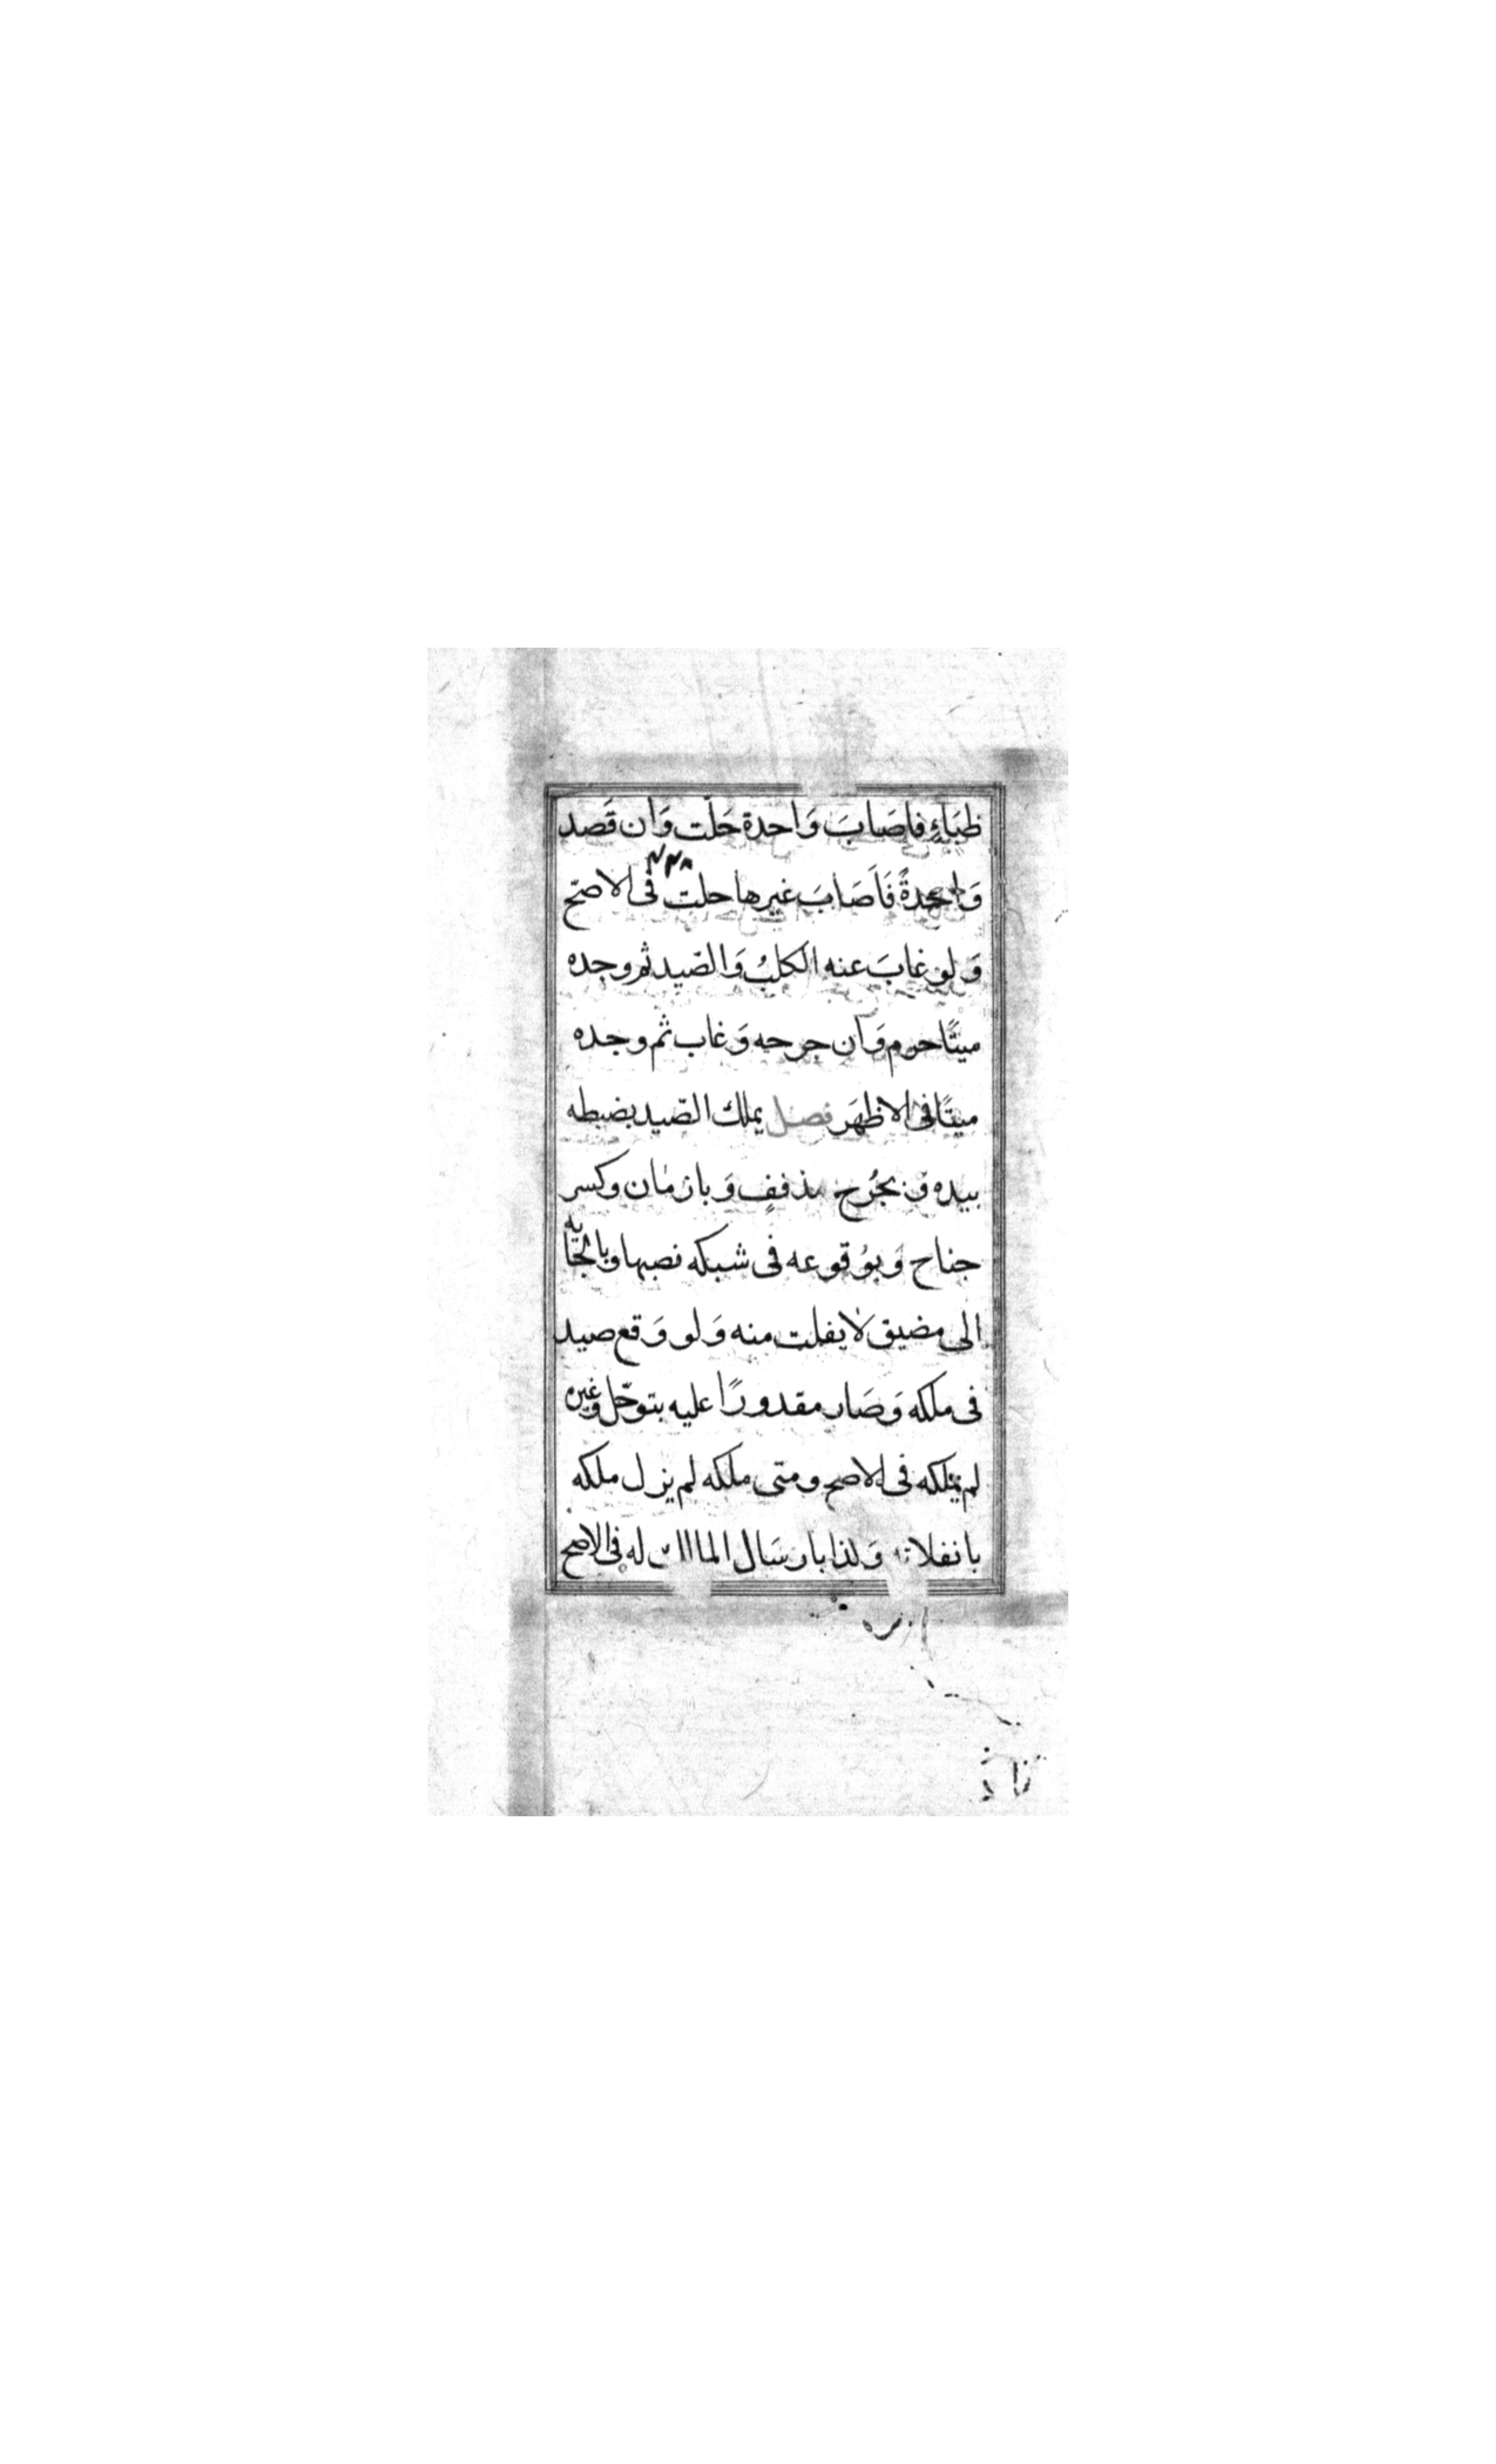 ظبَاءٍ فاصَابَ وَاحدة حَلّت وَان قَصد
وَاحِدةً فَاَصَابَ غيرها حلت فى الاصّح
وَلو غابَ عنه الكلبُ وَالصّيد ثم وجده
ميتًا حرم وَان جرحه وَغاب ثم وجده
ميتًا فى الاظهَر فصل يملك الصّيد بضبطه
بيده و بجُرح مذففٍ وَبازمان وكسر
جناح وَبوُقوعه فى شبكه نصبها وبالجَايه
الى مضيق لا يفلت منه وَلو وَقع صيد
فى ملكه وَصَار مقدورًا عليه بتوحّل وغيره
لم يملكه فى الاصح ومتى ملكه لم يزل ملكه
بانفلاته وَلذا بارسَال له فى الاصح